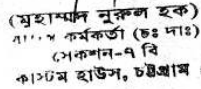 (মুহাম্মাদ নুরুল হক)
কর্মকর্তা (চঃ দাঃ)
সেকশন-৭ বি
কাস্টম হাউস, চট্টগ্রাম